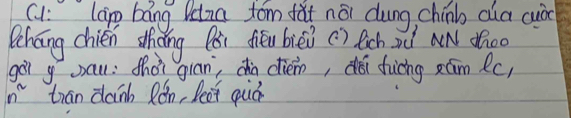 C1: lập bảng tóm tắt nội dung chính của cuộc
kháng chiến chống tiêu biểu () lịch sử NN theo
gợi ý sau: thời gian, địa điểm, đối tượng xâm lc,
n~ trận đánh lớn, kết quả